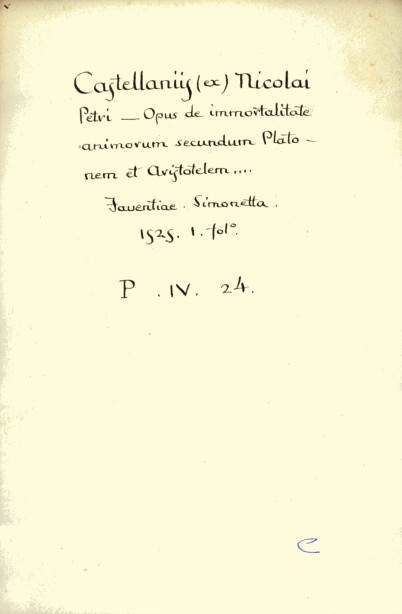 Castellaniis (ex) Nicolai
Petri — Opus de immortalitate
animorum secundum Plato-
nem et Aristotelem....
Faventiae. Simonetta.
1525. 1. folº.
P. IV. 24.
C